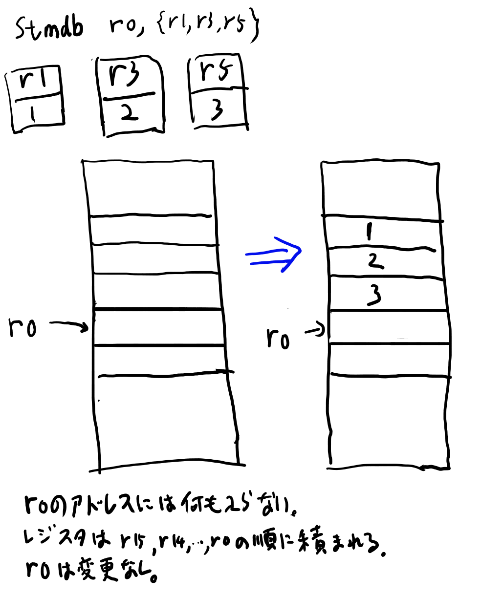 stmdb r0, {r1,r3,r5}
r1 r3 r5
1 2 3
1
2
3
r0 → r0 →
r0のアドレスには何も入らない。
レジスタは r15, r14, …, r0 の順に積まれる.
r0 は変更なし。